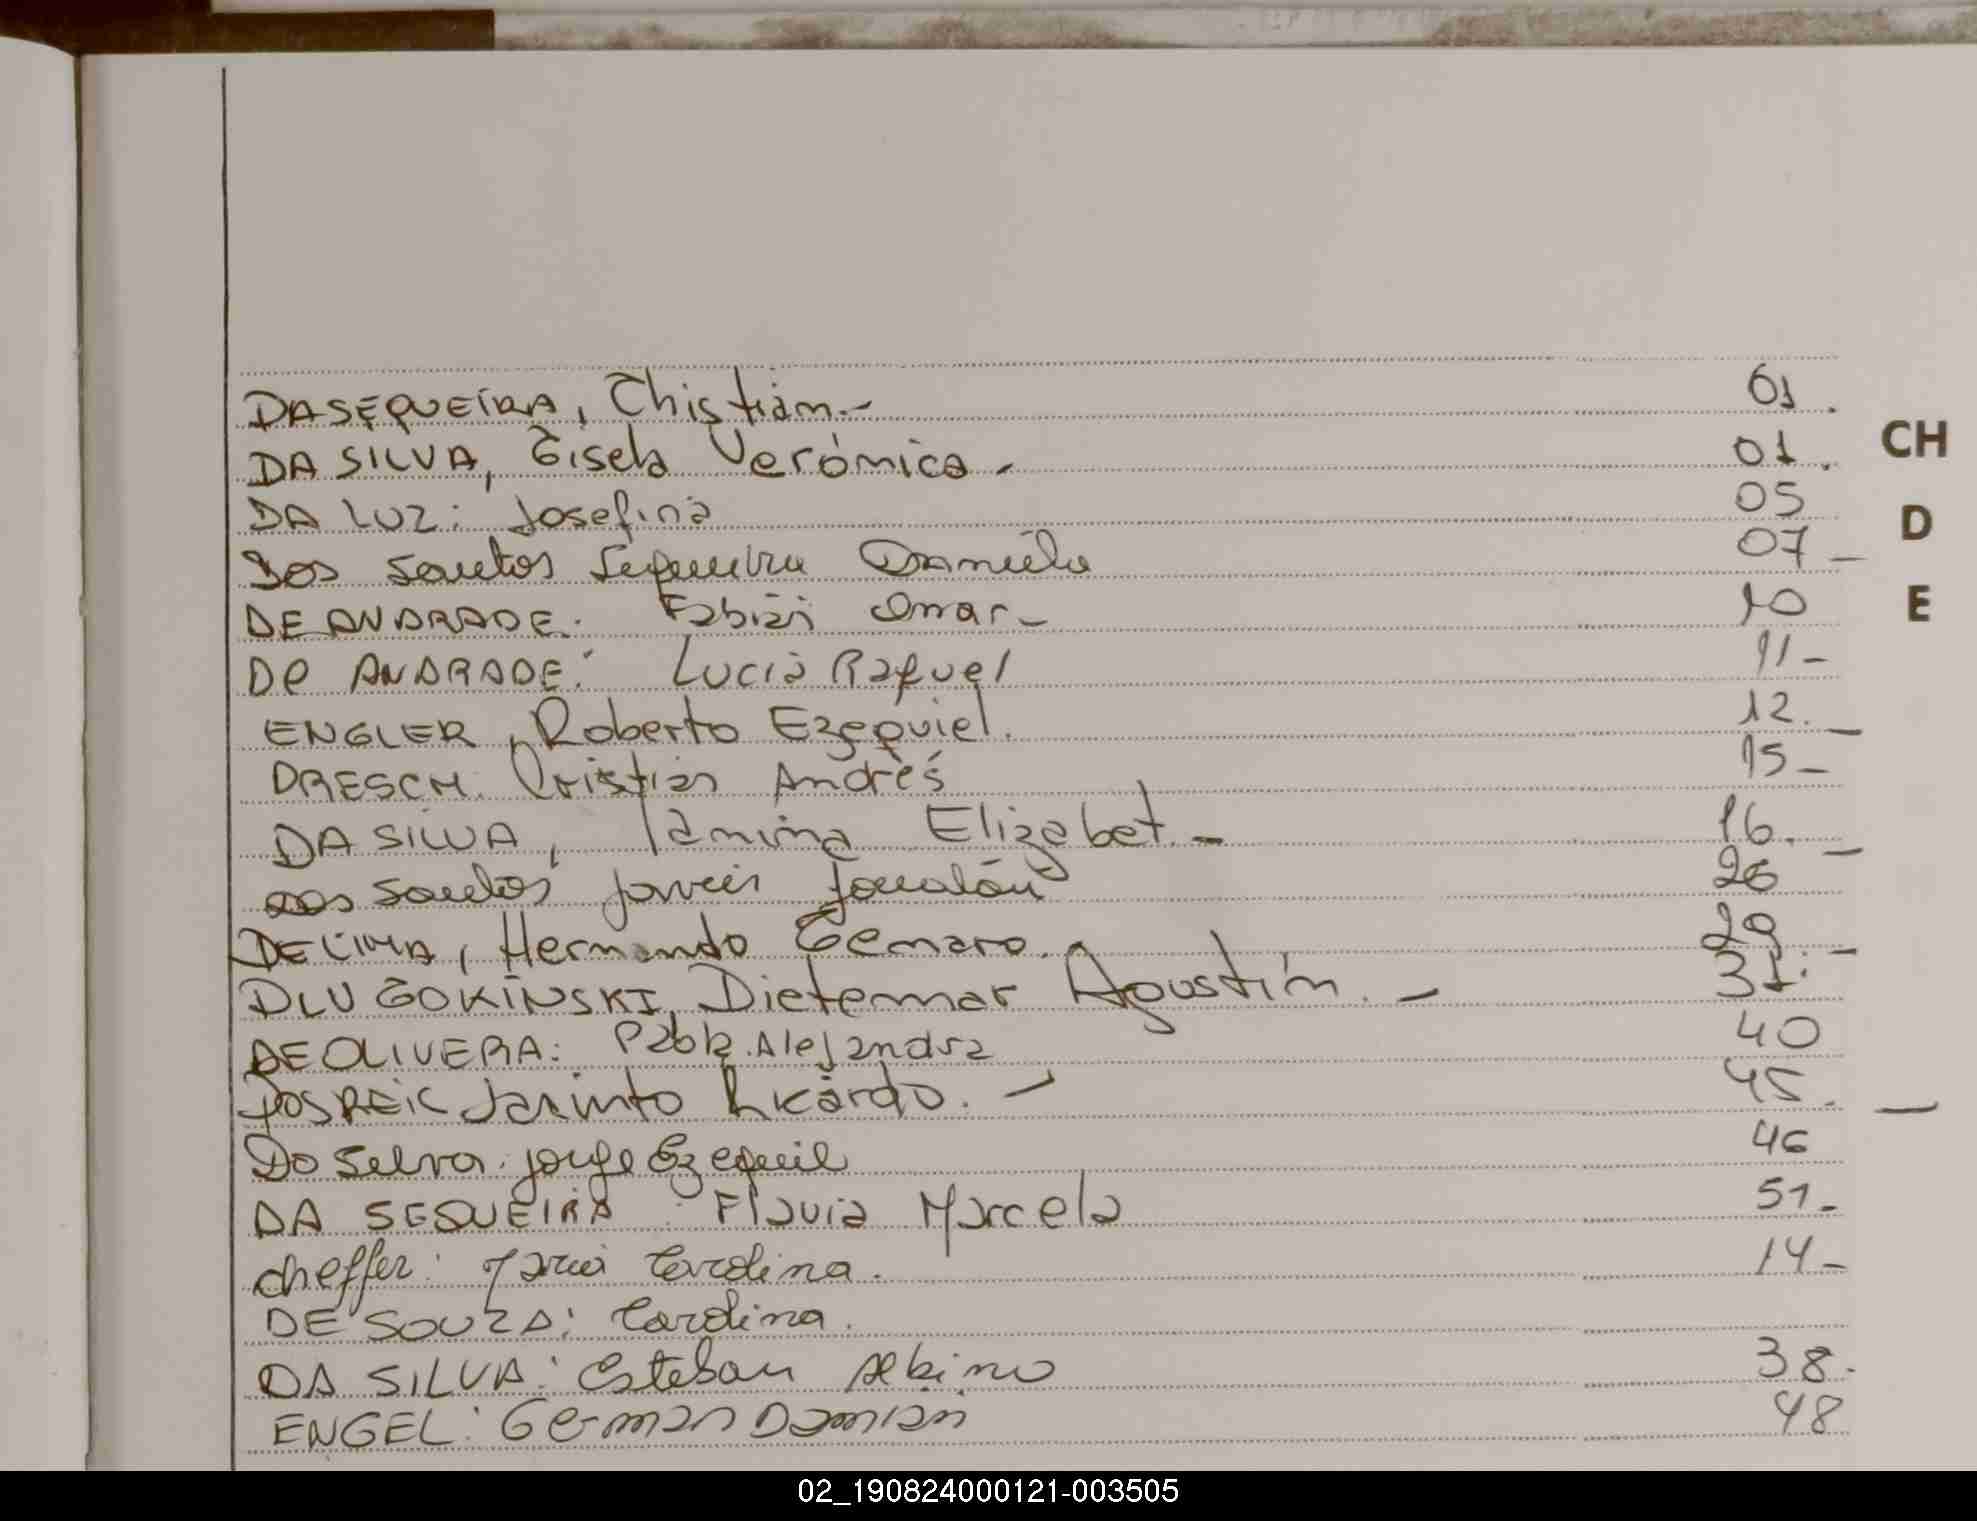 DASEQUEIRA, Christian.- 01.
DA SILVA, Gisela Verónica.- 01.
DA LUZ: Josefina 05
Dos Santos Sequeira Daniela 07-
DE ANDRADE: Fabián Omar- 10
De ANDRADE: Lucia Raquel 11-
ENGLER, Roberto Ezequiel. 12.-
DRESCH. Cristian Andrés 15-
DA SILVA, Yanina Elizabet.- 16.-
dos Santos Jonatán 26
DE LIMA, Hernando Genaro. 29.-
DLUGOKINSKI, Dietermar Agustín.- 31.
DE OLIVERA: Alejandra 40
DOS REIS Jacinto Ricardo.- 45.-
Da Selva. Jorge Ezequiel 46
DA SEQUEIRA: Flavia Marcela 51-
Cheffer: María Carolina. 14-
DE SOUZA: Carolina.
DA SILVA: Esteban Albino 38.
ENGEL: German Damián 48
CH
D
E
02_190824000121-003505